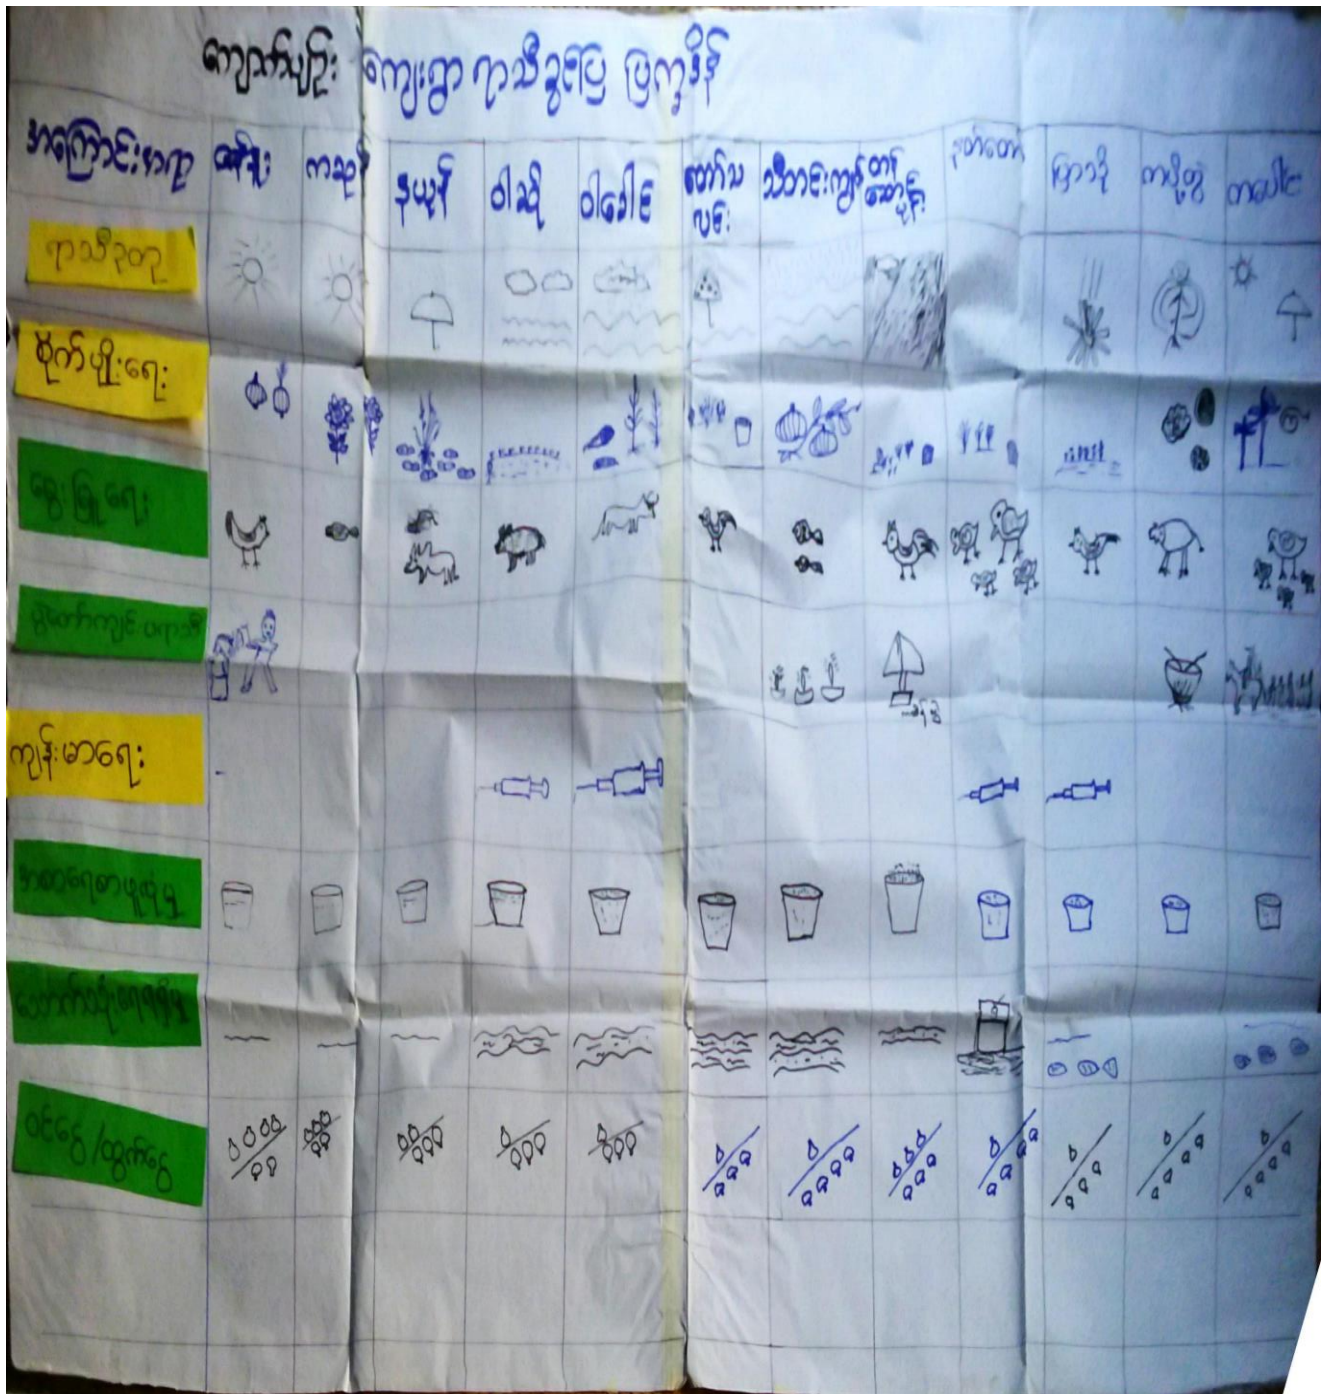 ကျောက်ပျဉ်း ကျေးရွာ ရာသီခွင်ပြ ပြက္ခဒိန်
အကြောင်းအရာ တန်ခူး ကဆုန် နယုန် ဝါဆို ဝါခေါင် တော်သလင်း သီတင်းကျွတ် တန်ဆောင်မုန်း နတ်တော် ပြာသို တပို့တွဲ တပေါင်း
ရာသီဥတု
စိုက်ပျိုးရေး
မွေးမြူရေး
ပွဲတော်ကျင်းပရာသီ
ကျန်းမာရေး
အစားရေစာဖူလုံမှု
သောက်သုံးရေရရှိမှု
ဝင်ငွေ/ထွက်ငွေ